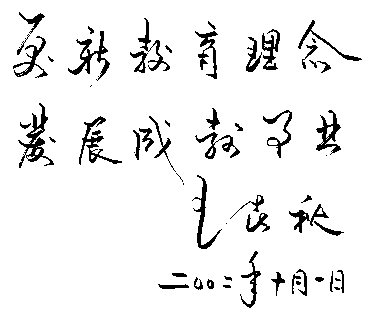 更新教育理念
发展成教事业
二〇〇二年十月一日